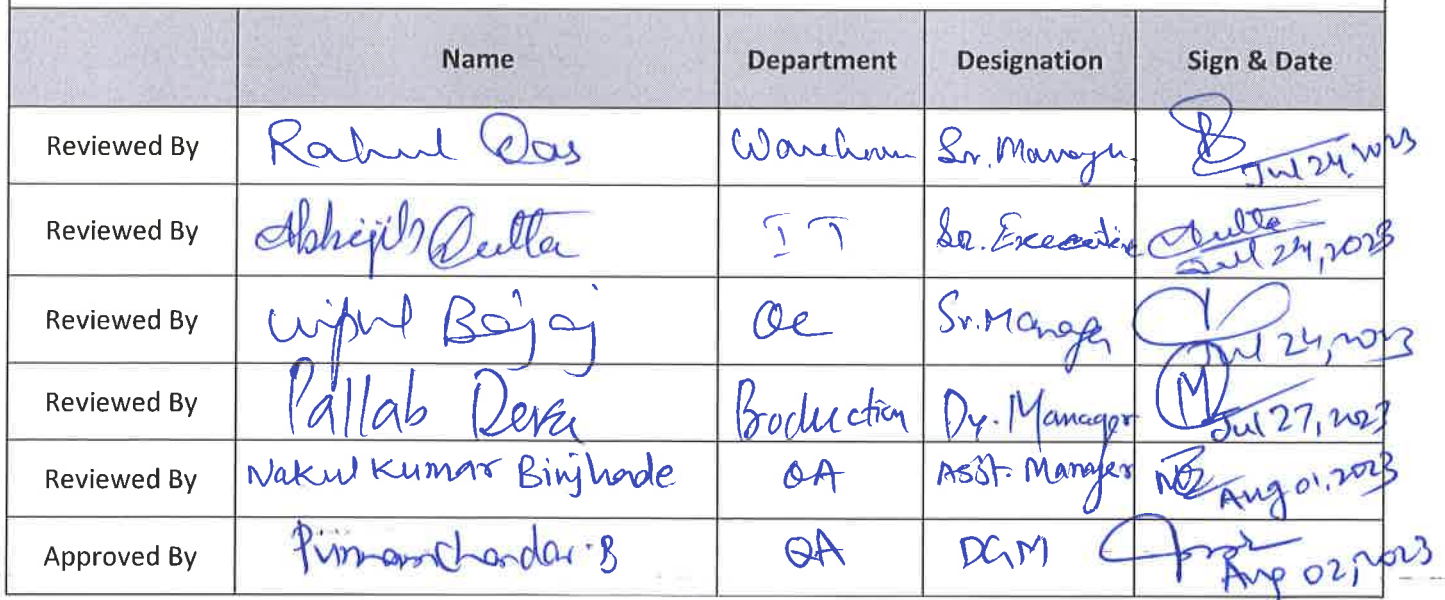 Name Department Designation Sign & Date
Reviewed By Rahul Das Warehouse Sr. Manager Jul 24, 2023
Reviewed By Abhijit Dutta IT Sr. Executive Dutta Jul 24, 2023
Reviewed By Vipul Bajaj QC Sr. Manager Jul 24, 2023
Reviewed By Pallab Production Dy. Manager Jul 27, 2023
Reviewed By Nakul Kumar Binjhade QA Asst. Manager Aug 01, 2023
Approved By QA DGM Aug 02, 2023